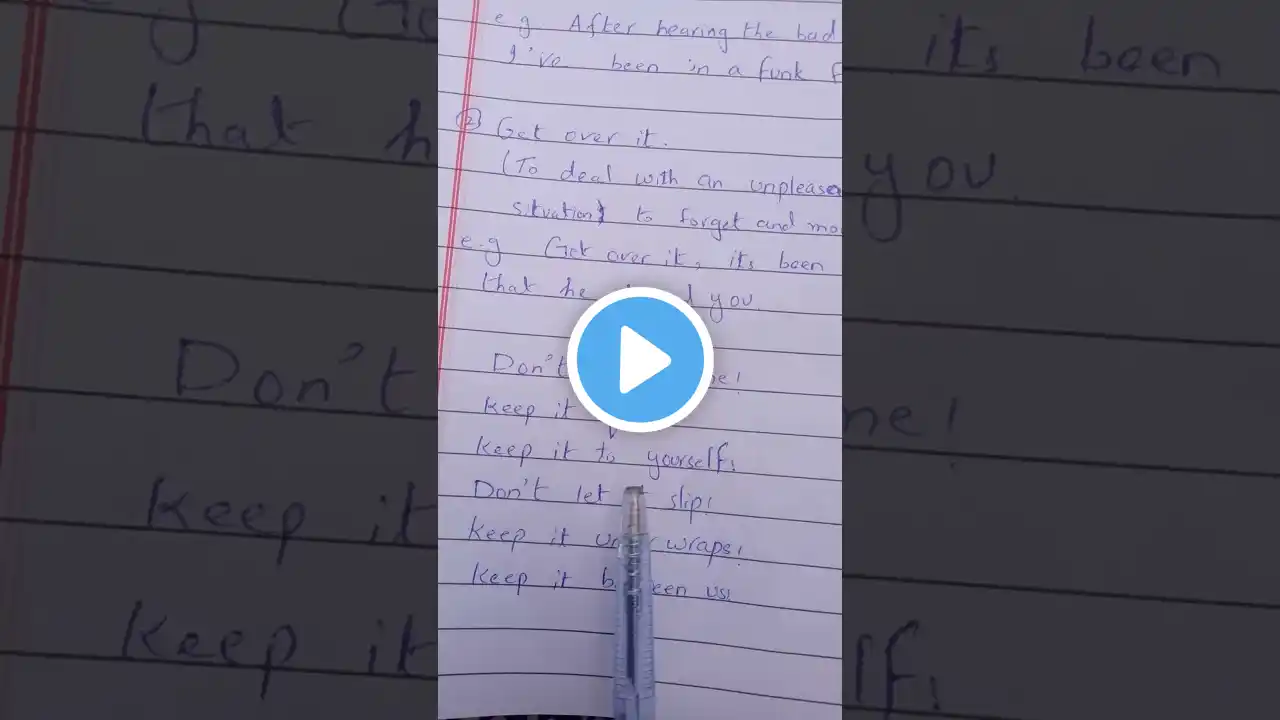 e.g After hearing the bad
I've been in a funk f
(2) Get over it.
(To deal with an unpleasa
situation) to forget and mo
e.g Get over it, its been
that he you
Don't me!
Keep it
Keep it to yourself!
Don't let it slip!
Keep it under wraps!
Keep it between us!